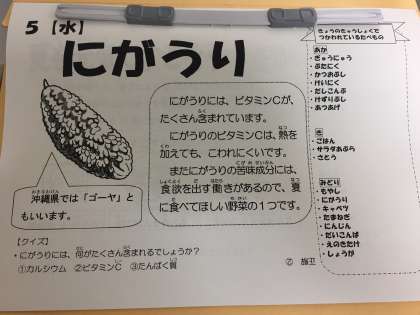 5【水】
にがうり
にがうりには、ビタミンCが、
たくさん含まれています。
にがうりのビタミンCは、熱を
加えても、こわれにくいです。
またにがうりの苦味成分には、
食欲を出す働きがあるので、夏
に食べてほしい野菜の1つです。
沖縄県では「ゴーヤ」と
もいいます。
【クイズ】
・にがうりには、何がたくさん含まれるでしょうか?
①カルシウム ②ビタミンC ③たんぱく質
きょうのきゅうしょくで
つかわれているたべもの
あか
・ぎゅうにゅう
・ぶたにく
・かつおぶし
・けいにく
・だしこんぶ
・けずりぶし
・あつあげ
き
・ごはん
・サラダあぶら
・さとう
みどり
・もやし
・にがうり
・キャベツ
・たまねぎ
・にんじん
・だいこんば
・えのきたけ
・しょうが
② 答正